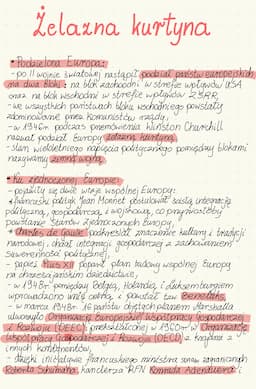 Żelazna kurtyna
• Podzielona Europa:
- po II wojnie światowej nastąpił podział państw europejskich
na dwa bloki: na blok zachodni w strefie wpływów USA
oraz na blok wschodni w strefie wpływów ZSRR,
- we wszystkich państwach bloku wschodniego powstały
zdominowane przez komunistów rządy,
- w 1946r. podczas przemówienia Winston Churchill
nazwał podział Europy żelazną kurtyną,
- stan wieloletniego napięcia politycznego pomiędzy blokami
nazywamy zimną wojną.
• Ku zjednoczonej Europie:
- pojawiły się dwie wizje wspólnej Europy:
francuski polityk Jean Monnet postulował ścisłą integrację
polityczną, gospodarczą i wojskową, co przyniosłoby
powstanie Stanów Zjednoczonych Europy
Charles de Gaulle podkreślał znaczenie kultury i tradycji
narodowej, chciał integracji gospodarczej z zachowaniem
suwerenności politycznej,
- papież Pius XII poparł plan budowy wspólnej Europy
na chrześcijańskim dziedzictwie,
- w 1948r. pomiędzy Belgią, Holandią i Luksemburgiem
wprowadzono unię celną, powstał tzw. Beneluks,
- w marcu 1948r. 16 państw objętych planem Marshalla
utworzyło Organizację Europejskiej Współpracy Gospodarczej
i Rozwoju (OEEC) przekształconej w 1960r. w Organizację
Współpracy Gospodarczej i Rozwoju (OECD) z krajami z
innych kontynentów,
- dzięki inicjatywie francuskiego ministra spraw zagranicznych
Roberta Schumana, kanclerza RFN Konrada Adenauera i